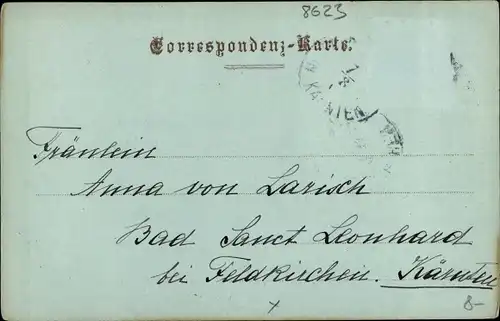 8623
Correspondenz-Karte.
KÄRNTEN
Fräulein
Anna von Larisch
Bad Sanct Leonhard
bei Feldkirchen. Kärnten
x 8-